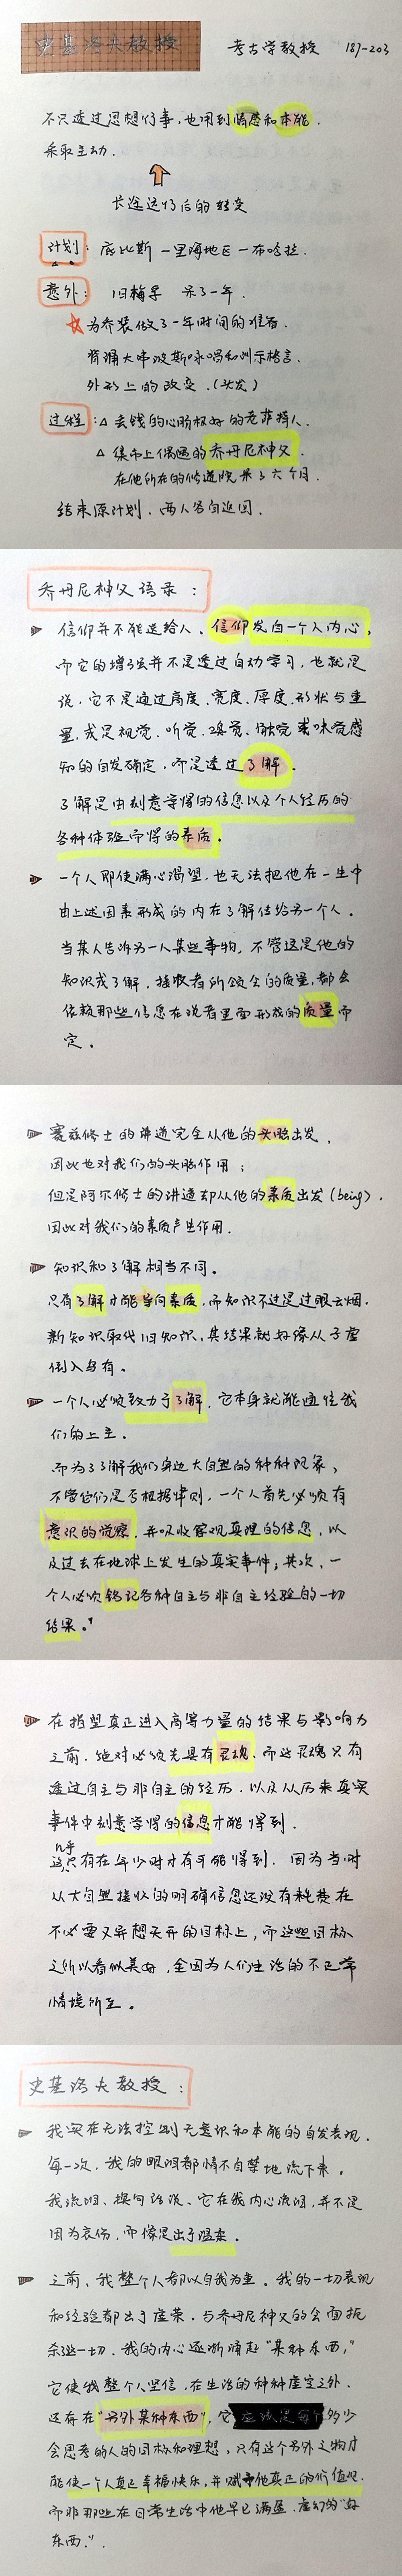 史基洛夫教授 考古学教授 187-203
不只透过思想行事,也用到情感和本能.
采取主动.
长途远行后的转变
计划: 底比斯 一里海地区 一布哈拉.
意外: 旧梅孚 呆了一年.
为乔装做了一年时间的准备.
背诵大串波斯咏唱和训示格言.
外形上的改变.(头发)
过程: △ 丢钱的心肠极好的老菲裤人.
△ 集市上偶遇的乔丹尼神父.
在他所在的修道院呆了六个月.
结束原计划,两人各自返回.
乔丹尼神父语录:
信仰并不能送给人. 信仰发自一个人内心,
而它的增强并不是透过自动学习,也就是
说,它不是通过高度、宽度、厚度、形状与重
量,或是视觉、听觉、嗅觉、触觉或味觉感
知的自发确定,而是透过了解.
了解是由刻意学得的信息以及个人经历的
各种体验而得的素质.
一个人即使满心渴望,也无法把他在一生中
由上述因素形成的内在了解传给另一个人.
当某人告诉另一人某些事物,不管这是他的
知识或了解,接收者所领会的质量,都会
依赖那些信息在说者里面形成的质量而
定.
赛兹修士的讲道完全从他的头脑出发,
因此也对我们的头脑作用;
但是阿尔修士的讲道却从他的素质出发(being),
因此对我们的素质产生作用.
知识和了解相当不同.
只有了解才能导向素质,而知识不过是过眼云烟.
新知识取代旧知识,其结果就好像从子虚
倒入乌有.
一个人必须致力于了解,它本身就能通往我
们的上主.
而为了了解我们身边大自然的种种现象,
不管它们是否根据律则,一个人首先必须有
意识的觉察,并吸收客观真理的信息,以
及过去在地球上发生的真实事件;其次,一
个人必须铭记各种自主与非自主经验的一切
结果."
在指望真正进入高等力量的结果与影响力
之前,绝对必须先具有灵魂.而这灵魂只有
透过自主与非自主的经历,以及从历来真实
事件中刻意学得的信息才能得到.
几乎
这只有在年少时才有可能得到.因为当时
从大自然接收的明确信息还没有耗费在
不必要又异想天开的目标上,而这些目标
之所以看似美好,全因为人们生活的不正常
情境所至.
史基洛夫教授:
我实在无法控制无意识和本能的自发表现.
每一次,我的眼泪都情不自禁地流下来.
我流泪、换句话说、它在我内心流泪,并不是
因为哀伤,而像是出于温柔.
之前、我整个人都以自我为重.我的一切表现
和经验都出于虚荣.与乔丹尼神父的会面扼
杀这一切.我的内心逐渐涌起"某种东西,"
它使我整个人坚信,在生活的种种虚空之外.
还存在"另外某种东西",它多少
会思考的人的目标和理想,只有这个另外之物才
能使一个人真正幸福快乐,并赋予他真正的价值观.
而非那些在日常生活中他早已满盈、虚幻的"好
东西."